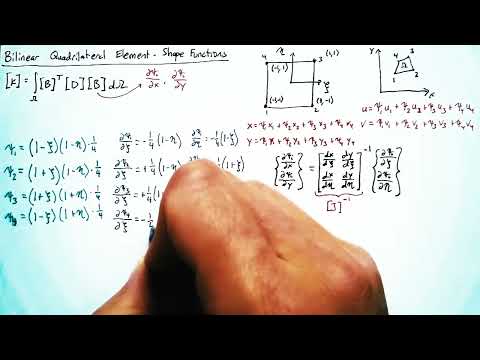 Bilinear Quadrilateral Element - Shape Functions
[k] = ∫Ω [B]ᵀ [D] [B] dΩ ∂ψᵢ/∂x , ∂ψᵢ/∂y
4 η 3 (1,1)
(-1,1)
ξ
(-1,-1) (1,-1)
1 2
Y
4 3
Ω
1 2
X
u = ψ₁ u₁ + ψ₂ u₂ + ψ₃ u₃ + ψ₄ u₄
v = ψ₁ v₁ + ψ₂ v₂ + ψ₃ v₃ + ψ₄ v₄
x = ψ₁ x₁ + ψ₂ x₂ + ψ₃ x₃ + ψ₄ x₄
y = ψ₁ y₁ + ψ₂ y₂ + ψ₃ y₃ + ψ₄ y₄
ψ₁ = (1-ξ)(1-η) · 1/4 ∂ψ₁/∂ξ = -1/4 (1-η) ∂ψ₁/∂η = -1/4 (1-ξ)
ψ₂ = (1+ξ)(1-η) · 1/4 ∂ψ₂/∂ξ = +1/4 (1-η) (1+ξ)
ψ₃ = (1+ξ)(1+η) · 1/4 ∂ψ₃/∂ξ = +1/4 (1
ψ₄ = (1-ξ)(1+η) · 1/4 ∂ψ₄/∂ξ = -1
{∂ψᵢ/∂x ∂ψᵢ/∂y} = [dx/dξ dy/dξ dx/dη dy/dη]⁻¹ {∂ψᵢ/∂ξ ∂ψᵢ/∂η}
[J]⁻¹